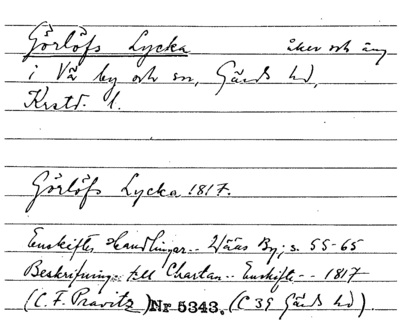 Görlöfs Lycka åker och äng
i Vä by och sn, Gärds hd,
Krstd. l.
Görlöfs Lycka 1817.
Enskiftes Handlingar .. Wääs By; s. 55-65
Beskrifning .. till Chartan .. Enskifte -- 1817
(C. F. Pravitz) Nr 5343. (C 39 Gärds hd).